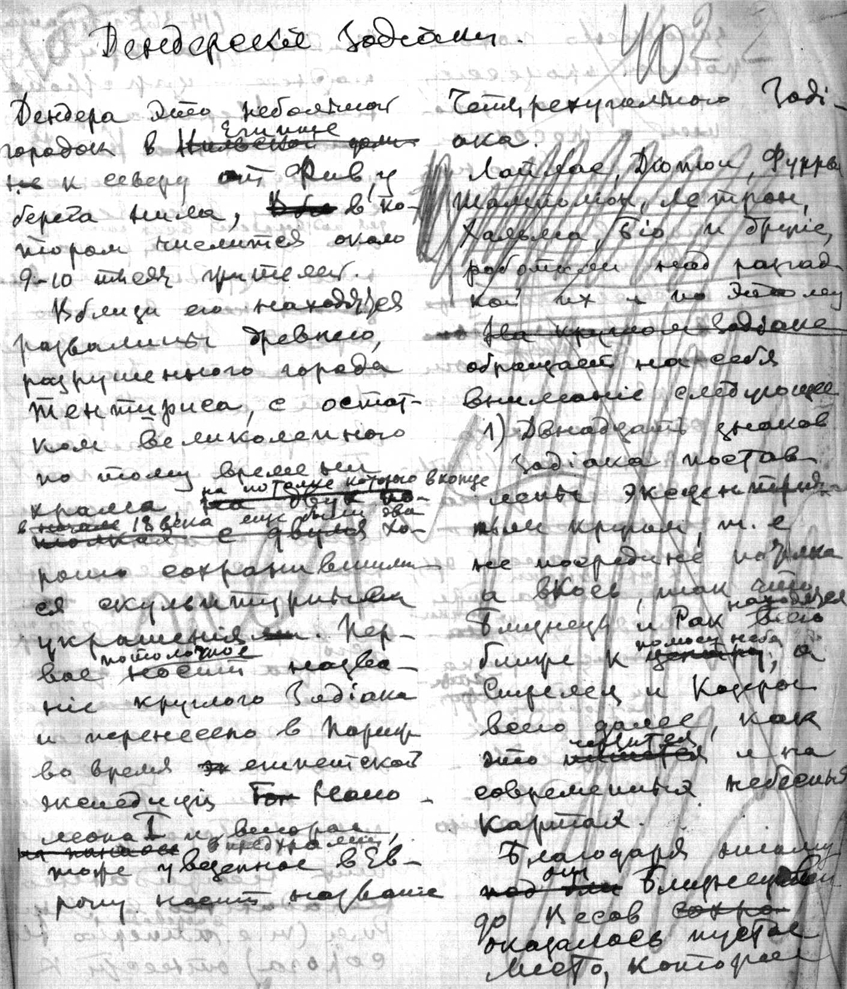 Дендерскіе Зодіаки.
402
Дендера это небольшой
городок в Египте
к северу от Фив, у
берега Нила, в ко-
тором числится около
9-10 тысяч жителей.
Вблизи его находятся
развалины древнего,
разрушенного города
Тентириса, с остат-
ком великолепного
по тому времени
храма, на потолке которого в конце
в 18 века еще были два
с двумя хо-
рошо сохранившими-
ся скульптурными
украшенія. Пер-
вое потолочное носит назва-
ніе круглого Зодіака
и перенесено в Париж
во время египетской
экспедиціи Напо-
леона I и второе,
в предхраміи,
тоже увезенное в Ев-
ропу носит названіе
Четырехугольного Зоді-
ака.
Лаплас, Дюпюи, Фурье
Шамполіон, Летрон,
Хальма, Біо и
работали над разгад-
кой их и по этому
На круглом Зодіаке
обращает на себя
вниманіе следующее
1) Двенадцать знаков
Зодіака постав-
лены эксцентрич-
ным кругом, т. е
не посредине потолка
а вкось, так что
Близнецы и Рак находятся всего
ближе к полюсу неба центру, а
Стрелец и Козерог
всего далее, как
это чертится и на
современных небесных
картах.
Благодаря этому
под Близнецами
до Весов
оказалось пустое
место, которое